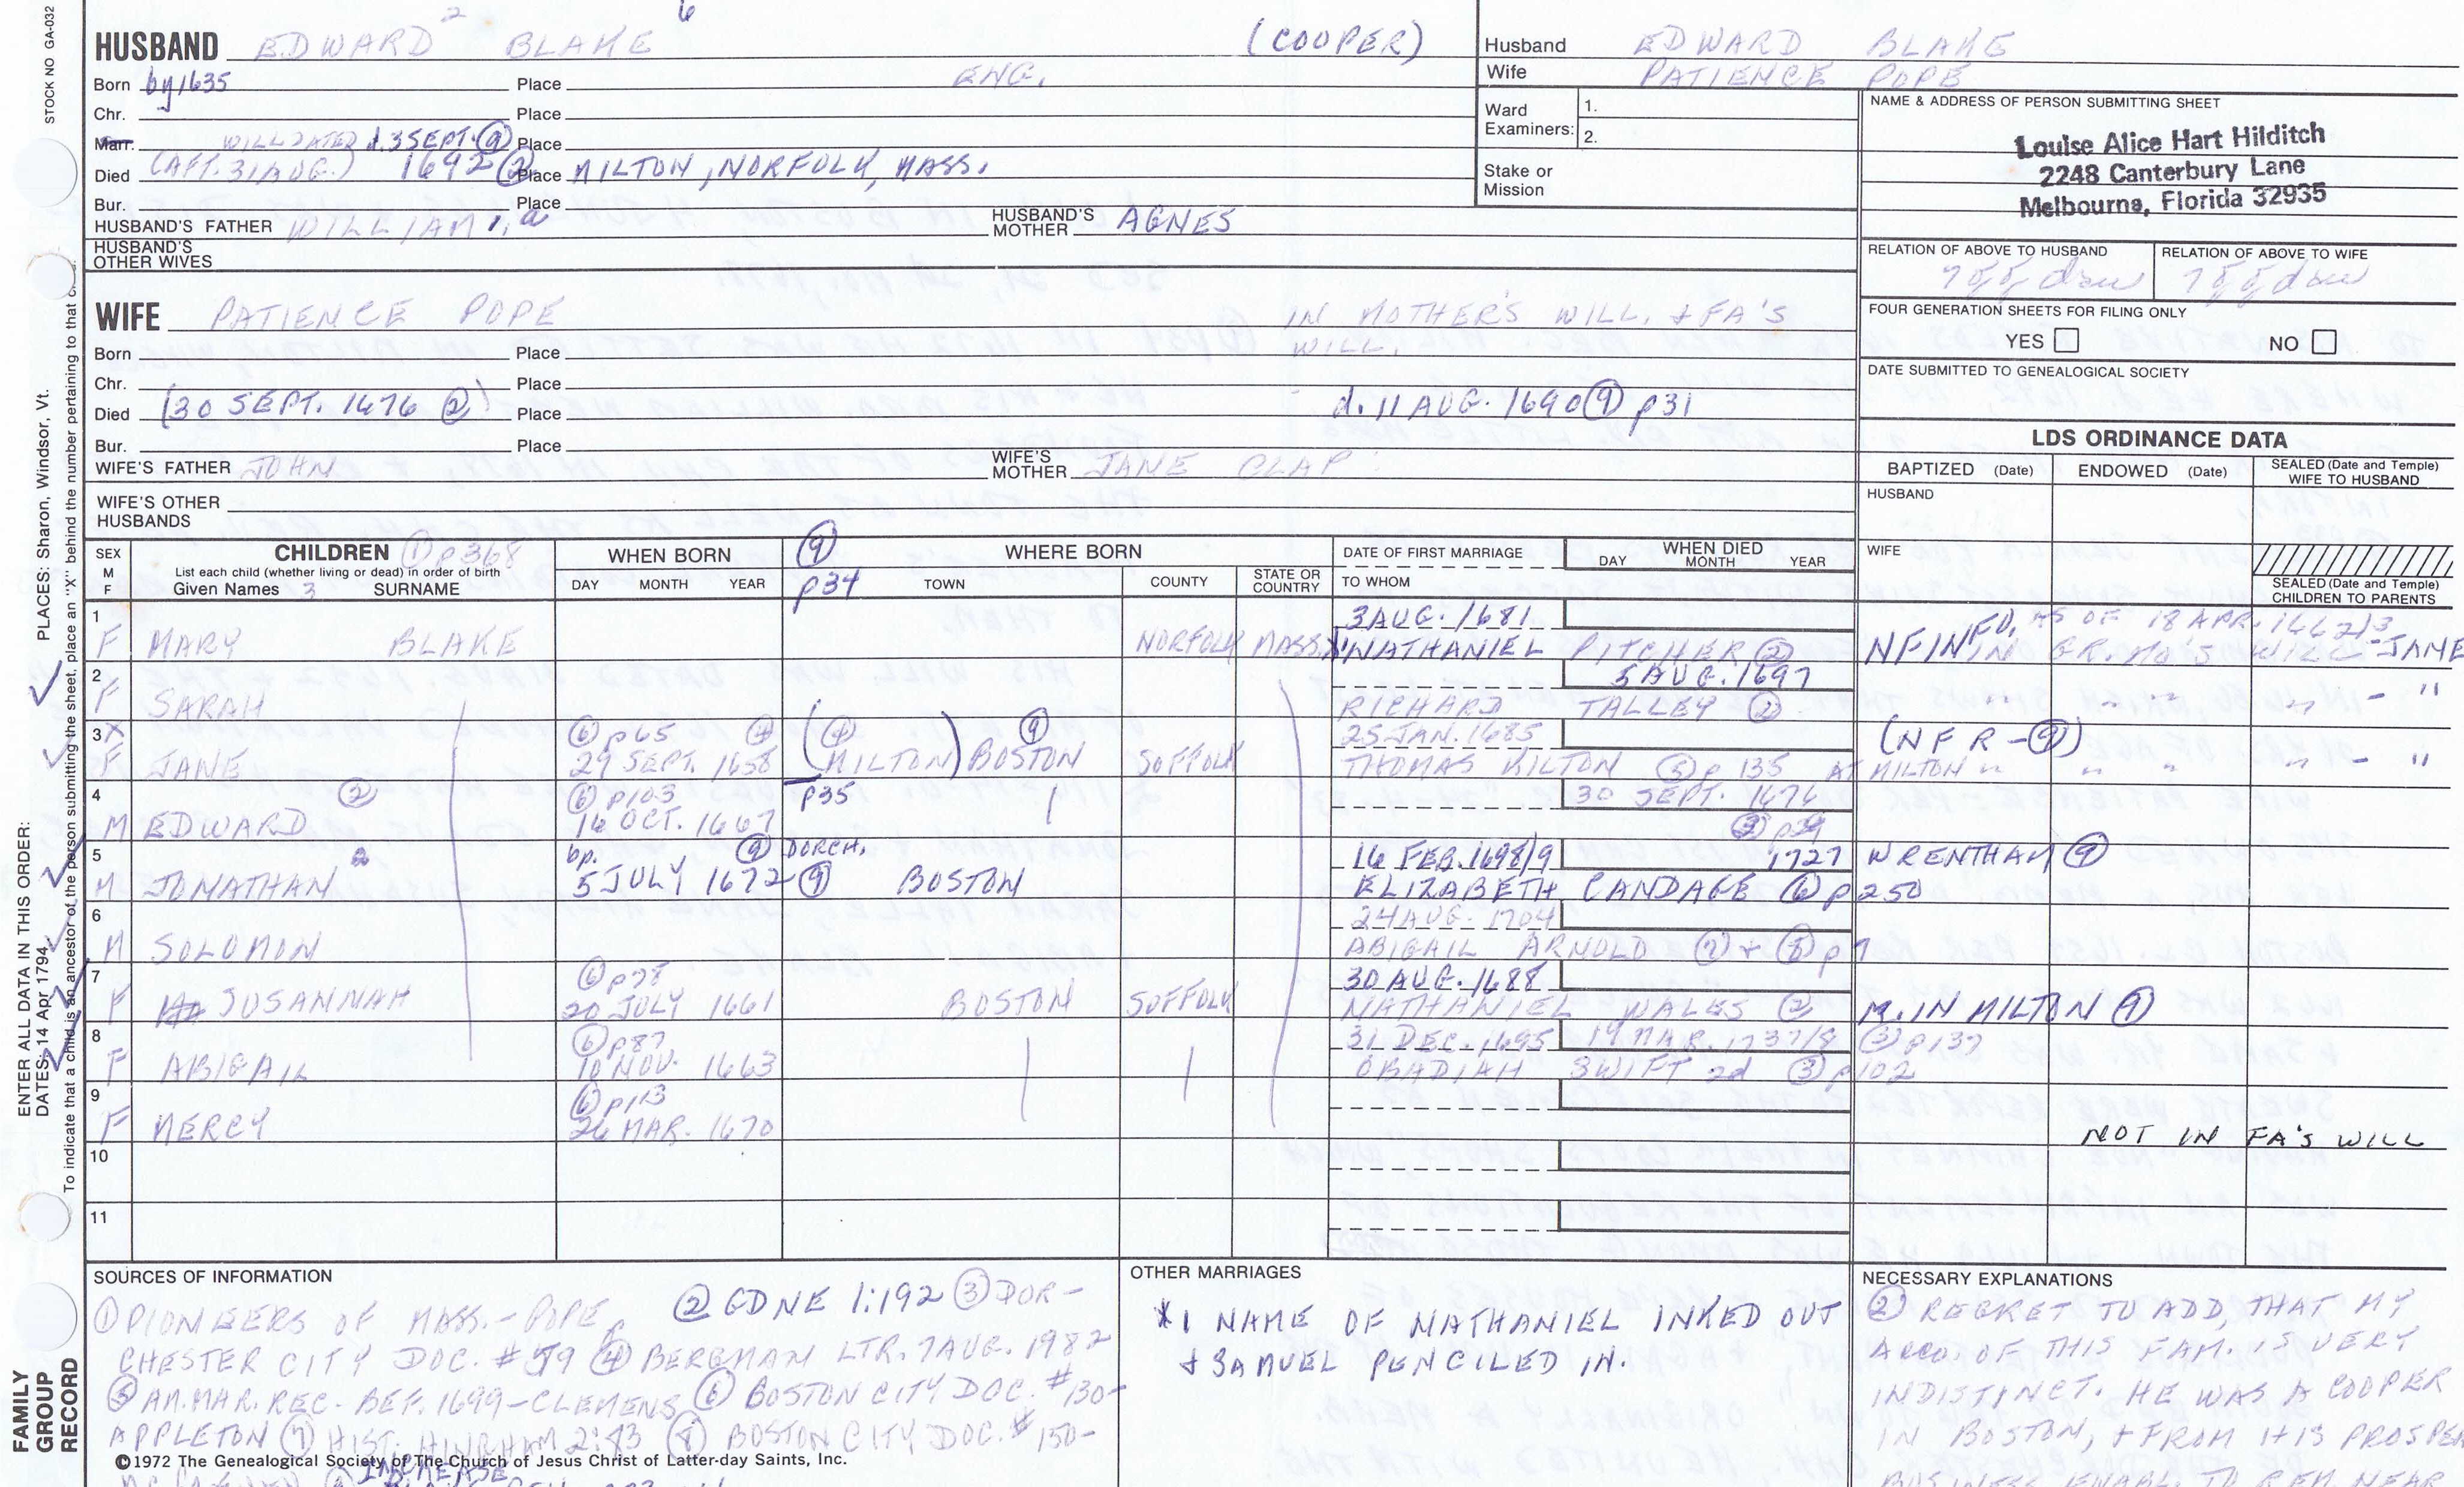 STOCK NO GA-032
2 6
HUSBAND EDWARD BLAKE (COOPER)
Born by 1635 Place ENG.
Chr. Place
Marr. WILL DATED d. 3 SEPT. (9) Place
Died (AFT. 31 AUG.) 1692 (2) Place MILTON, NORFOLK, MASS.
Bur. Place
HUSBAND'S FATHER WILLIAM HUSBAND'S MOTHER AGNES
HUSBAND'S OTHER WIVES
WIFE PATIENCE POPE IN MOTHER'S WILL, + FA'S
WILL.
Born Place
Chr. Place
Died (30 SEPT. 1676 (2)) Place d. 11 AUG. 1690 (9) p31
Bur. Place
WIFE'S FATHER JOHN WIFE'S MOTHER JANE CLAP
WIFE'S OTHER HUSBANDS
Husband EDWARD BLAKE
Wife PATIENCE POPE
Ward Examiners: 1.
2.
Stake or Mission
NAME & ADDRESS OF PERSON SUBMITTING SHEET
Louise Alice Hart Hilditch
2248 Canterbury Lane
Melbourne, Florida 32935
RELATION OF ABOVE TO HUSBAND RELATION OF ABOVE TO WIFE
7 g g dau 7 g g dau
FOUR GENERATION SHEETS FOR FILING ONLY
YES NO
DATE SUBMITTED TO GENEALOGICAL SOCIETY
LDS ORDINANCE DATA
BAPTIZED (Date) ENDOWED (Date) SEALED (Date and Temple) WIFE TO HUSBAND
HUSBAND
WIFE
SEALED (Date and Temple) CHILDREN TO PARENTS
SEX M F
CHILDREN (1) p368
List each child (whether living or dead) in order of birth
Given Names 3 SURNAME
WHEN BORN
DAY MONTH YEAR
(9) p34
WHERE BORN
TOWN COUNTY STATE OR COUNTRY
DATE OF FIRST MARRIAGE
TO WHOM
WHEN DIED
DAY MONTH YEAR
1 3 AUG. 1681 AS OF 18 APR. 1662/3
F MARY BLAKE NORFOLK MASS. NATHANIEL PITCHER (2) NFIN IN GR. MO'S WILL - JANE
2 5 AUG. 1697
F SARAH RICHARD TALLEY (2) - "
3 X (6) p65 (4) (4) (9) 25 JAN. 1685 (NFR-(9))
F JANE 29 SEPT. 1658 (MILTON) BOSTON SUFFOLK THOMAS KILTON (5) p135 AT MILTON - "
4 (2) (6) p103 p35 30 SEPT. 1676
M EDWARD 16 OCT. 1667 (3) p29
5 bp. (9) DORCH. 16 FEB. 1698/9 1727 WRENTHAM (9)
M JONATHAN 5 JULY 1672 (9) BOSTON ELIZABETH CANDAGE (6) p250
6 24 AUG. 1704
M SOLOMON ABIGAIL ARNOLD (2) + (8) p7
7 (6) p78 30 AUG. 1688
F SUSANNAH 20 JULY 1661 BOSTON SUFFOLK NATHANIEL WALES (2) M. IN MILTON (9)
8 (6) p87 31 DEC. 1695 19 MAR. 1737/8 (3) p137
F ABIGAIL 10 NOV. 1663 OBADIAH SWIFT 2d (3) p102
9 (6) p113
F MERCY 26 MAR. 1670 NOT IN FA'S WILL
10
11
SOURCES OF INFORMATION
(1) PIONEERS OF MASS.-POPE (2) GDNE 1:192 (3) DOR-
CHESTER CITY DOC. #59 (4) BERGMAN LTR. 7 AUG. 1982
(5) AM. MAR. REC. BEF. 1699-CLEMENS (6) BOSTON CITY DOC. #130-
APPLETON (7) HIST. HINGHAM 2:73 (8) BOSTON CITY DOC. #150-
©1972 The Genealogical Society of The Church of Jesus Christ of Latter-day Saints, Inc.
INCREASE
OTHER MARRIAGES
X1 NAME OF NATHANIEL INKED OUT
+ SAMUEL PENCILED IN.
NECESSARY EXPLANATIONS
(2) REGRET TO ADD, THAT MY
ACCO. OF THIS FAM. IS VERY
INDISTINCT. HE WAS A COOPER
IN BOSTON, + FROM HIS PROSPER
BUSINESS ENABL. TO REM. NEAR
ENTER ALL DATA IN THIS ORDER:
DATES: 14 Apr 1794
PLACES: Sharon, Windsor, Vt.
To indicate that a child is an ancestor of the person submitting the sheet, place an "X" behind the number pertaining to that
FAMILY GROUP RECORD